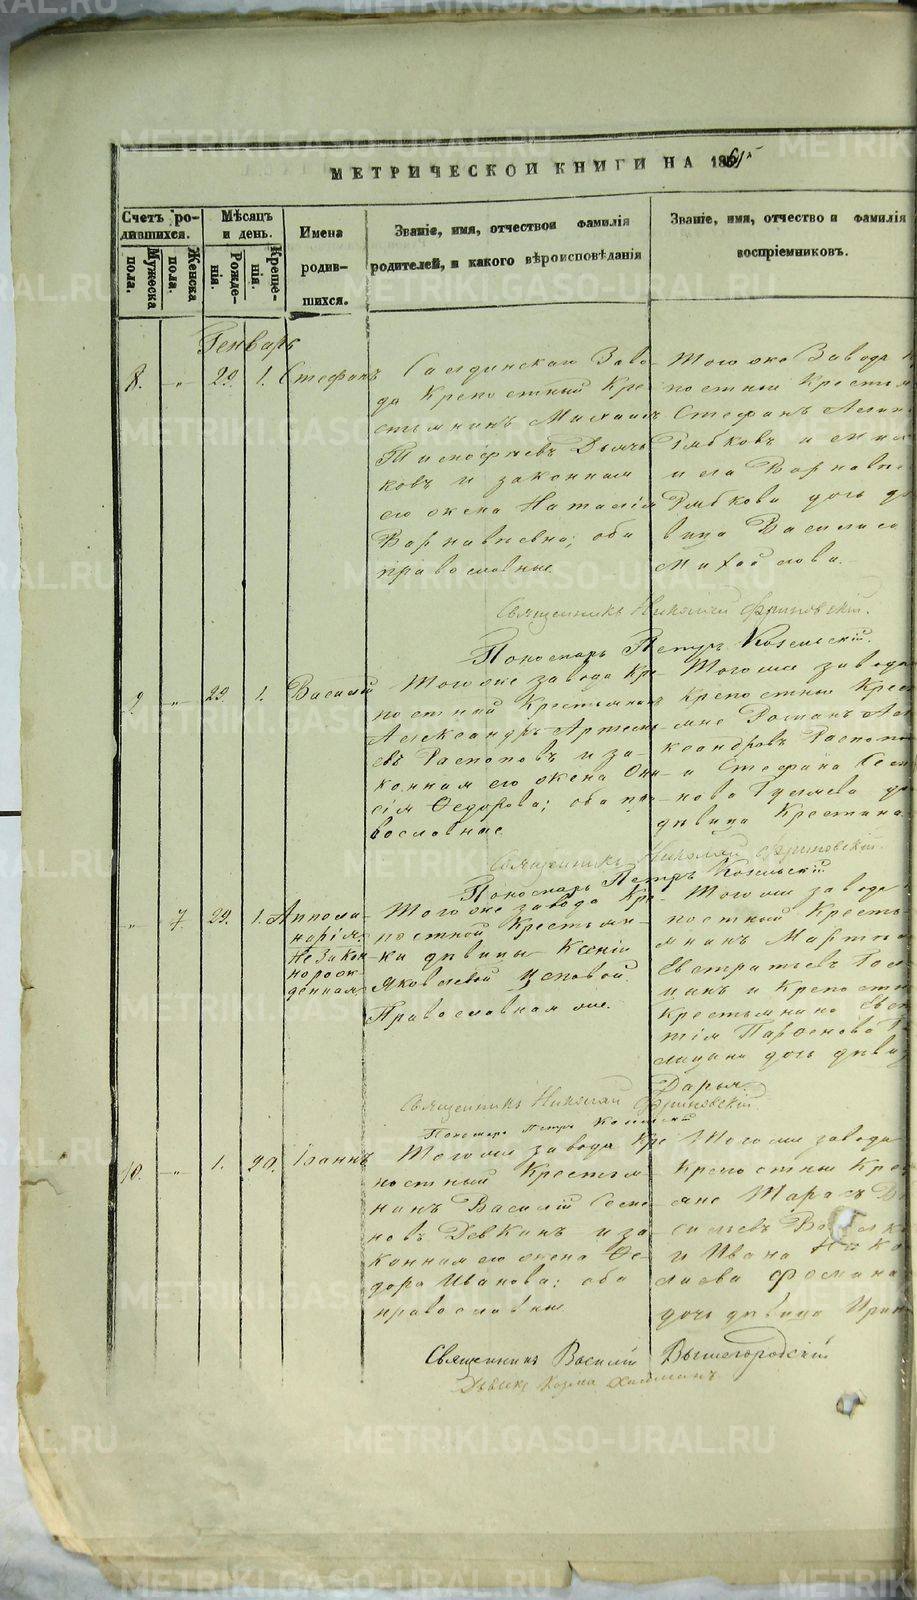 METRIKI.GASO-URAL.RU
МЕТРИЧЕСКОЙ КНИГИ НА 1861й
Счетъ ро-
дившихся.
Мужеска пола.
Женска пола.
Мѣсяцъ
и день.
Рожде-
нія.
Креще-
нія.
Имена
родив-
шихся.
Званіе, имя, отчествои фамилія
родителей, и какого вѣроисповѣданія
Званіе, имя, отчество и фамилія
воспріемниковъ.
Генварь
8. " 29. 1. Стефанъ
Салдинскаго Заво-
да Крепостный Кре-
стьянинъ Михаилъ
Тимофѣевъ
ковъ и законная
его жена Наталія
Варнавиевна; оба
православные.
Того же Завода
постные Крестья
Стефанъ
Рябковъ и
Рябкова дочь дѣ
вица Василиса
Михайлова.
Священникъ Николай Фриновскій.
Пономарь Петръ Козельскій.
9. " 29. 1. Василій
Того же завода Кре-
постной Крестьянинъ
Александръ Артемь-
евъ Распоповъ и за-
конная его жена
Федорова; оба пра-
вославные
Того же завода
крепостные Крес
яне Романъ Але
ксандровъ Распопо
и Стефана Семе
нова Гуляева
дѣвица Крестина
Священникъ Николай Фриновскій.
Пономарь Петръ Козельскій
" 7. 29. 1. Апполи-
нарія.
Незакон
норож
денная
Того же завода Кре-
постной Крестьян-
ки дѣвицы Ксеніи
Яковлевой
Православная же.
Того же завода
постный Кресть-
янинъ
Евстратьевъ
и Крепостн
Крестьянина
тія Парфенова
лицына дочь дѣвиц
Дарья.
Священникъ Николай Фриновскій
Пономарь Петръ Козельскій
10. " 1. 20. Іоаннъ
Того же завода Кре
постный Крестья
нинъ Василій Семе
новъ Девкинъ и за
конная его жена Фе-
дора Иванова; оба
православные.
Того же завода
Крепостные Крес
яне Тарасъ Ва
сильевъ
и Ивана Нико
лаева Фомина
дочь дѣвица Ирин
Священникъ Василій Вышегородскій
Козма